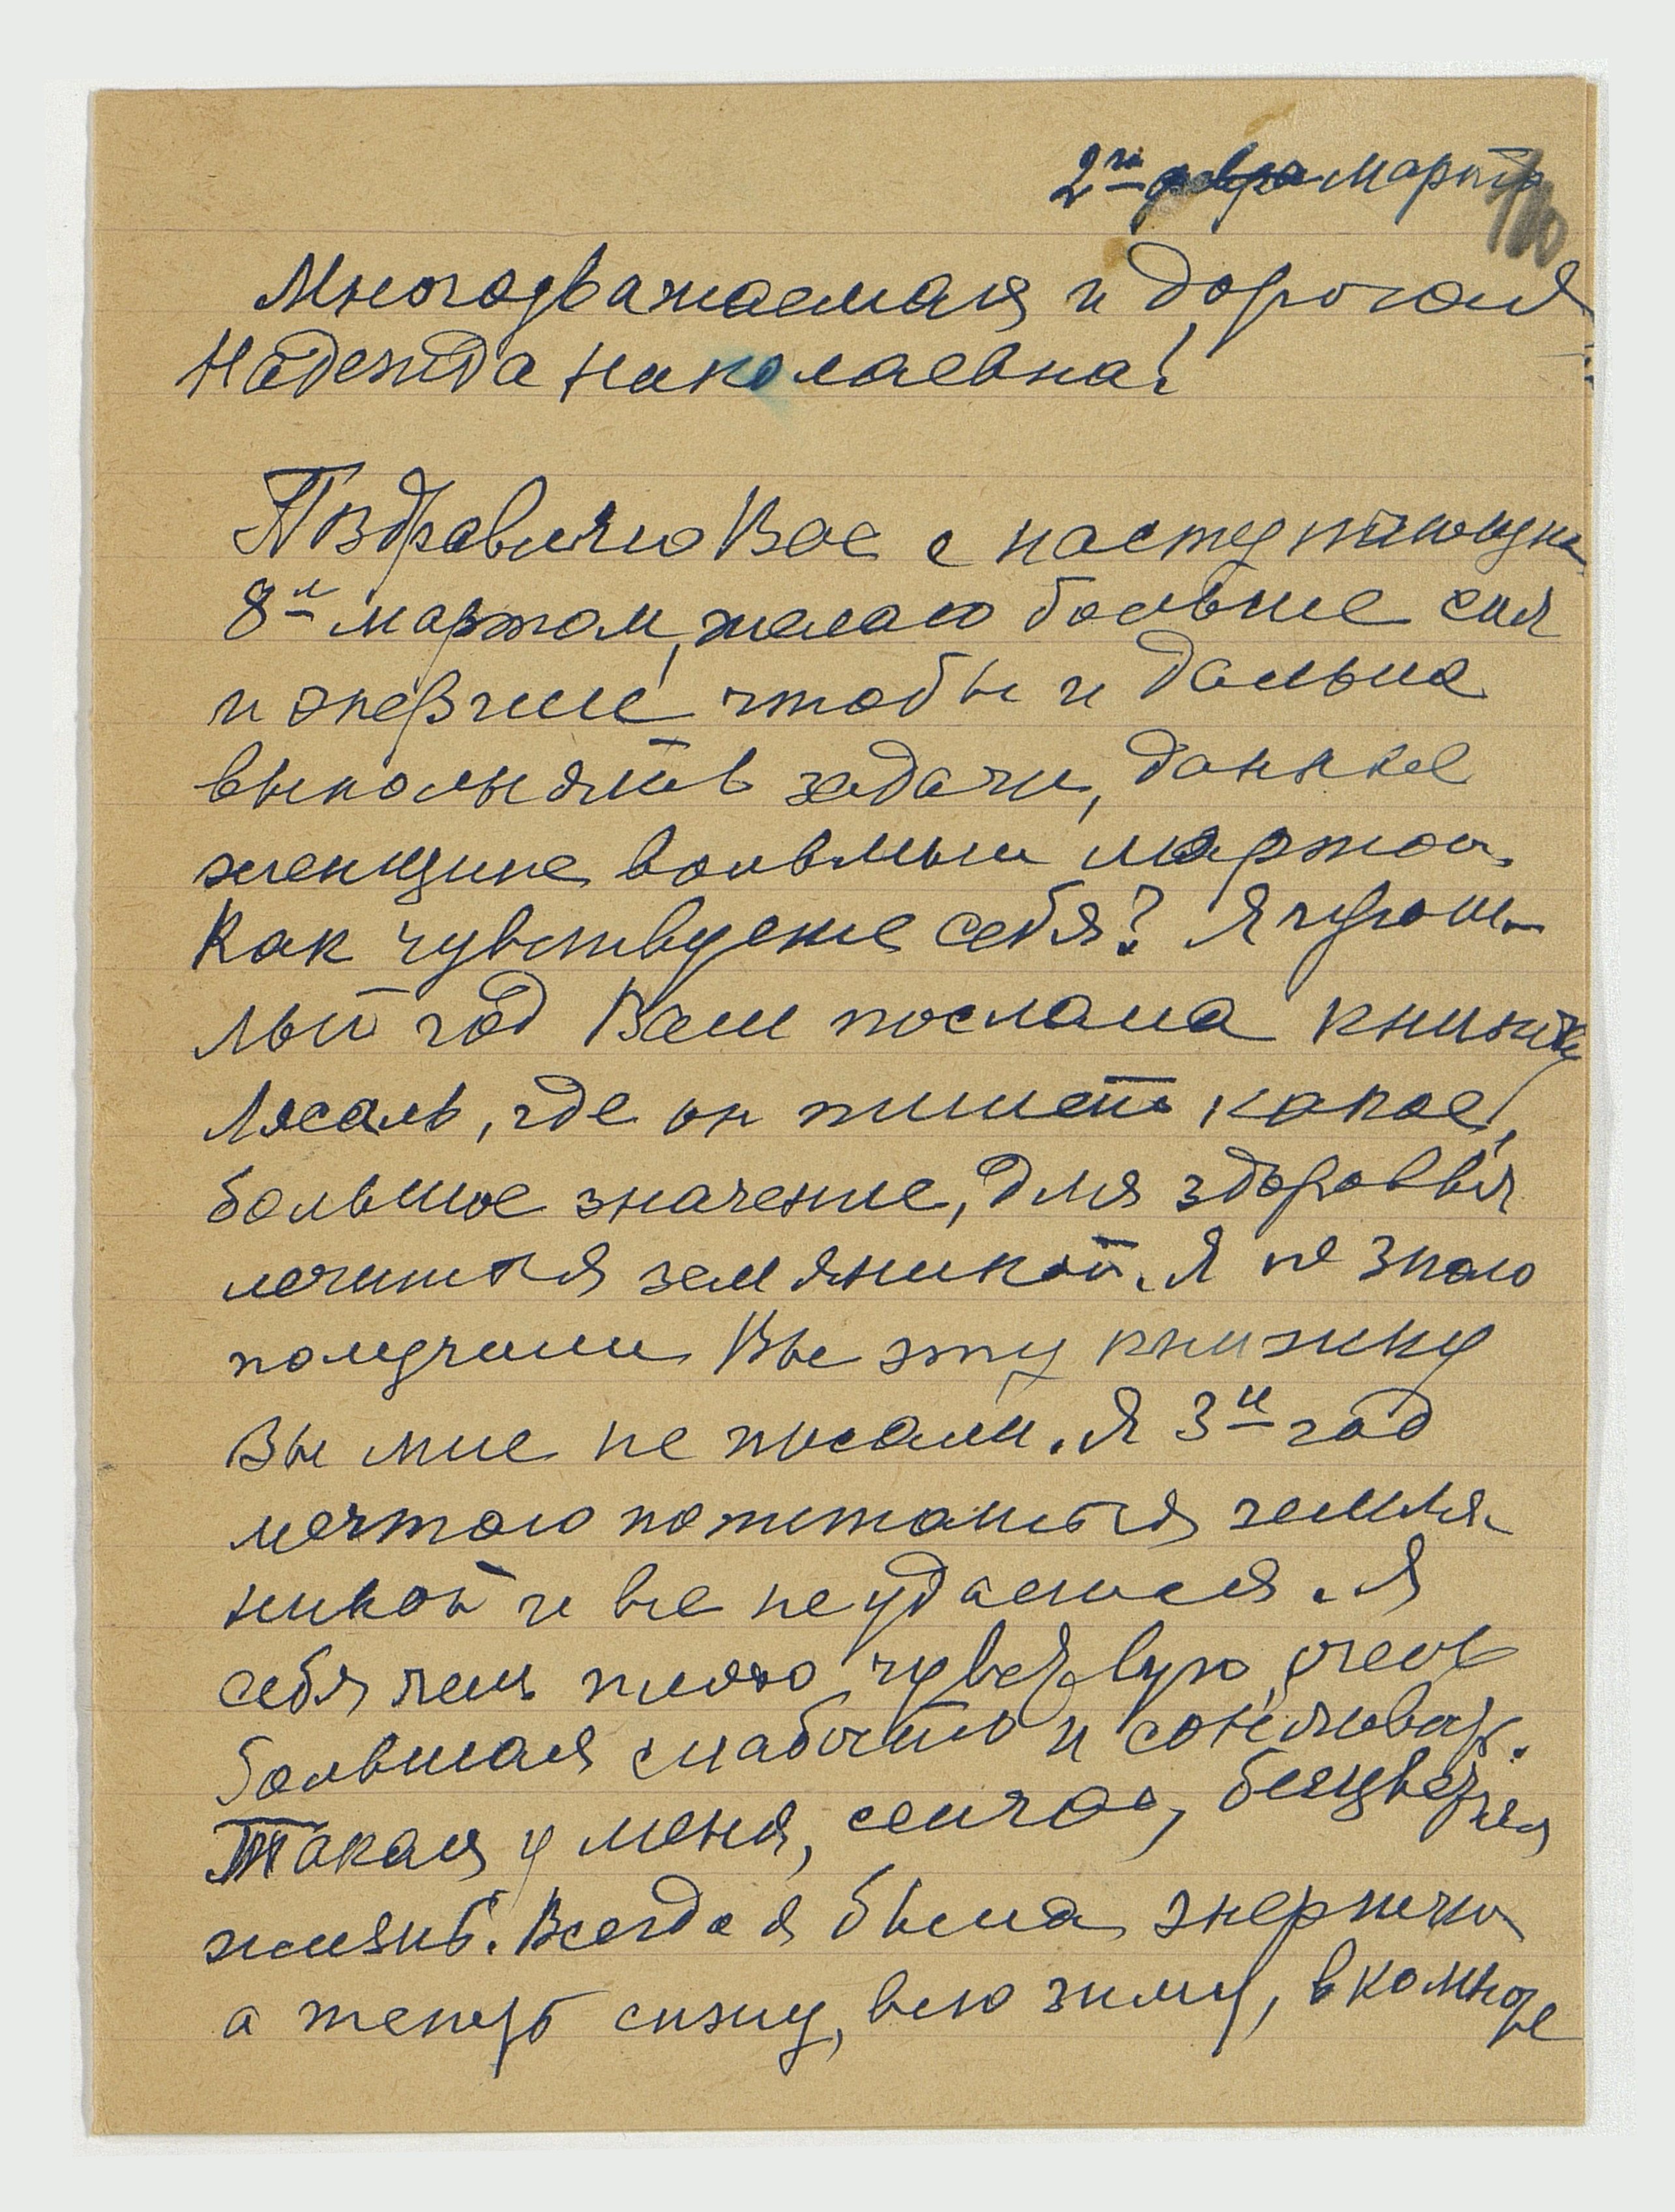 2го марта
Многоуважаемая и дорогая
Надежда Николаевна!
Поздравляю Вас с наступающим
8м мартом, желаю больше сил
и энергии чтобы и дальше
выполнять задачи, данные
женщине восьмым мартом.
Как чувствуете себя? Я прош-
лый год Вам послала книжку
где он пишет какое,
большое значение, для здоровья
лечиться земляникой. Я не знаю
получили Вы эту книжку
Вы мне не писали. Я 3й год
мечтаю попитаться земля-
никой и все не удается. Я
себя плохо чувствую очень
большая слабость и сонливость.
Такая у меня, сейчас, бесцветная
жизнь. Всегда я была энергична
а теперь сижу, всю зиму, в комнате